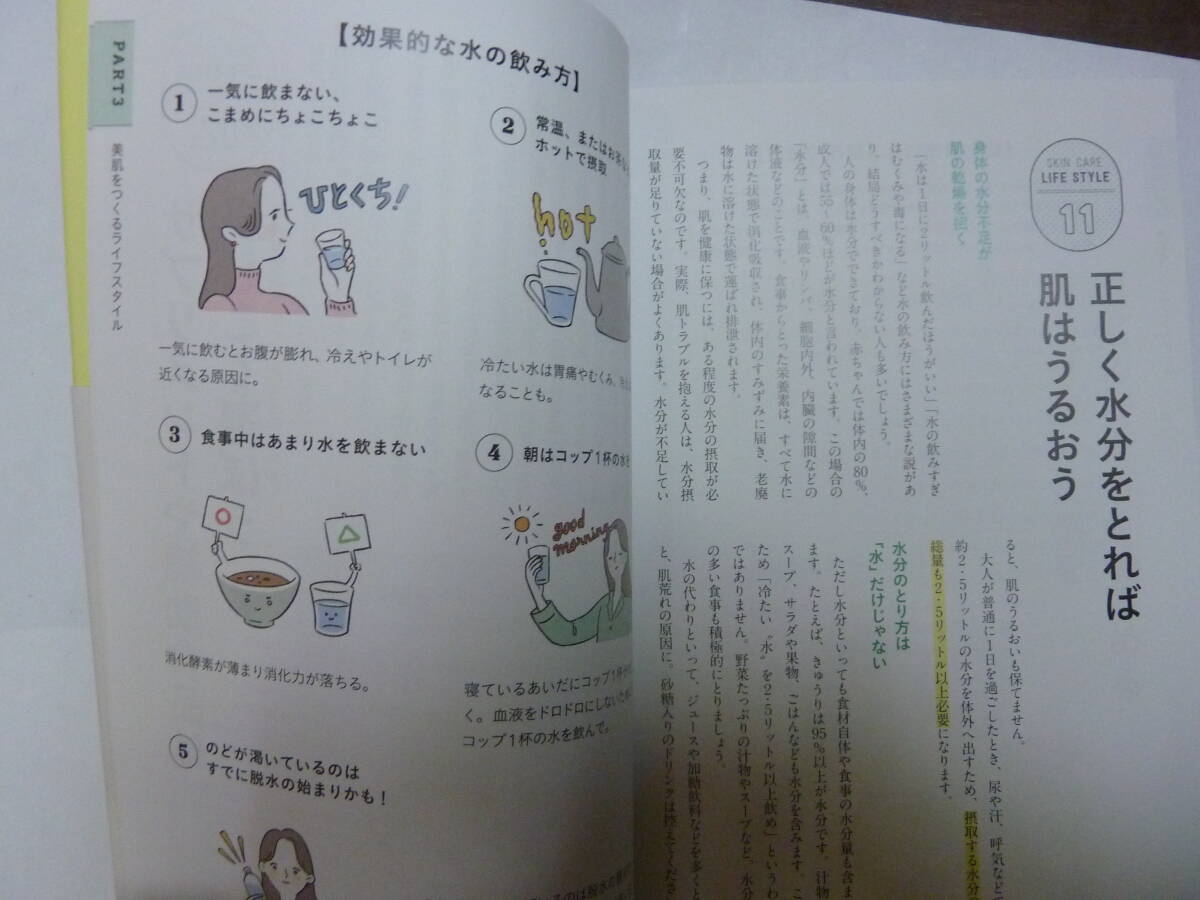 SKIN CARE
LIFE STYLE
11
正しく水分をとれば
肌はうるおう
身体の水分不足が
肌の乾燥を招く
「水は1日に2リットル飲んだほうがいい」「水の飲みすぎ
はむくみや毒になる」など水の飲み方にはさまざまな説があ
り、結局どうすべきかわからない人も多いでしょう。
人の身体は水分でできており、赤ちゃんでは体内の80%、
成人では55〜60%ほどが水分と言われています。この場合の
「水分」とは、血液やリンパ、細胞内外、内臓の隙間などの
体液などのことです。食事からとった栄養素は、すべて水に
溶けた状態で消化吸収され、体内のすみずみに届き、老廃
物は水に溶けた状態で運ばれ排泄されます。
つまり、肌を健康に保つには、ある程度の水分の摂取が必
要不可欠なのです。実際、肌トラブルを抱える人は、水分摂
取量が足りていない場合がよくあります。水分が不足してい
ると、肌のうるおいも保てません。
大人が普通に1日を過ごしたとき、尿や汗、呼気などで
約2・5リットルの水分を体外へ出すため、摂取する水分の
総量も2・5リットル以上必要になります。
水分のとり方は
「水」だけじゃない
ただし水分といっても食材自体や食事の水分量も含ま
ます。たとえば、きゅうりは95%以上が水分です。汁物
スープ、サラダや果物、ごはんなども水分を含みます。こ
ため「冷たい〝水〟を2・5リットル以上飲め」というわ
ではありません。野菜たっぷりの汁物やスープなど、水分
の多い食事も積極的にとりましょう。
水の代わりといって、ジュースや加糖飲料などを多くと
と、肌荒れの原因に。砂糖入りのドリンクは控えてくださ
PART3
美肌をつくるライフスタイル
【効果的な水の飲み方】
1
一気に飲まない、
こまめにちょこちょこ
ひとくち!
一気に飲むとお腹が膨れ、冷えやトイレが
近くなる原因に。
2
常温、またはお茶な
ホットで摂取
hot
冷たい水は胃痛やむくみ、
なることも。
3
食事中はあまり水を飲まない
消化酵素が薄まり消化力が落ちる。
4
朝はコップ1杯の水を
good
morning
寝ているあいだにコップ1杯
く。血液をドロドロにしないため
コップ1杯の水を飲んで。
5
のどが渇いているのは
すでに脱水の始まりかも!
るのは脱水の